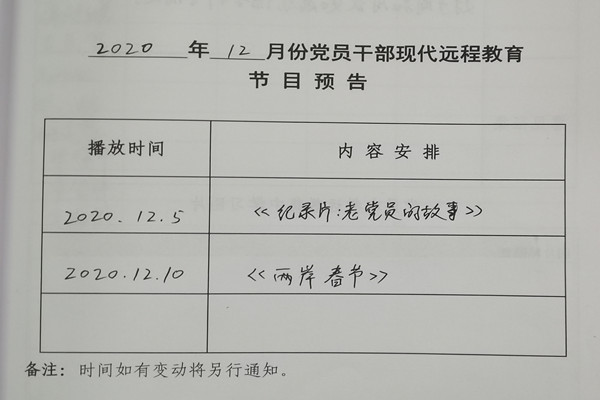 2020 年 12 月份党员干部现代远程教育
节目预告
播放时间 内容安排
2020.12.5 《纪录片:老党员的故事》
2020.12.10 《两岸春节》
备注：时间如有变动将另行通知。